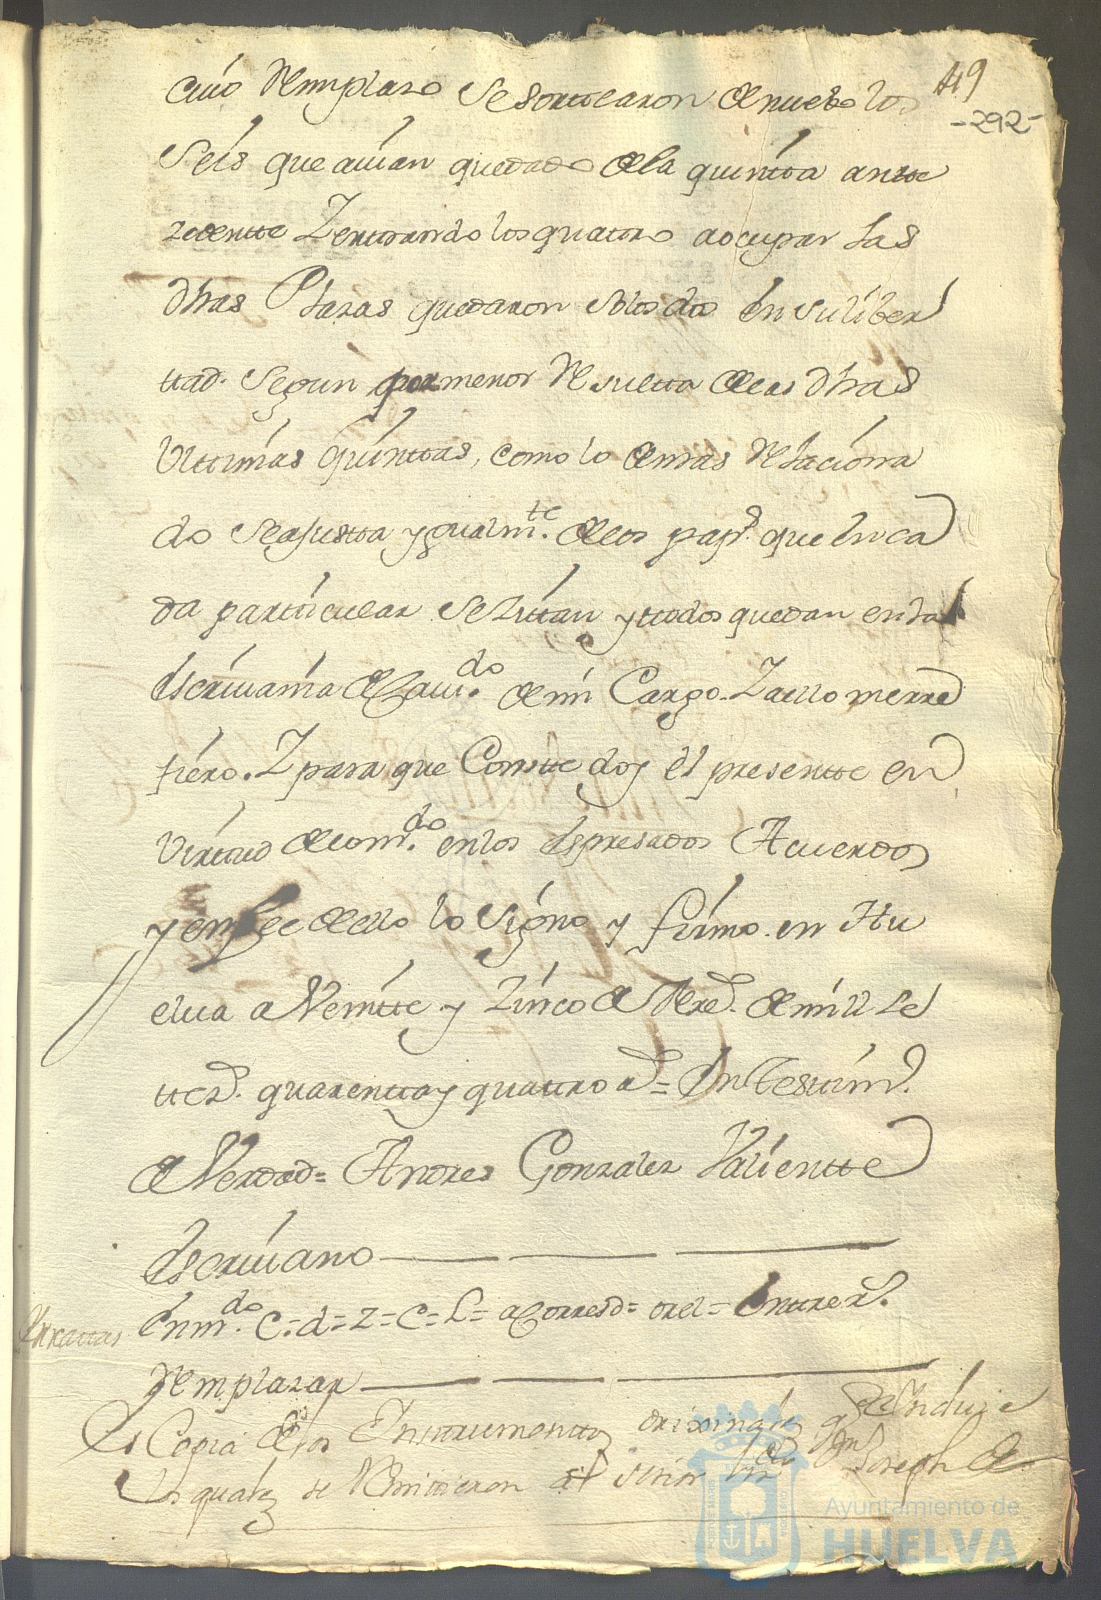 49
-292-
cuio Remplazo se sortearon de nuebo los
seis que auian quedado de la quintta antte
zedentte Y enttrando los quatro a ocupar las
dhas Plazas quedaron solos dos en su liber
ttad. segun por menor Resultta de las dhas
Ulttimas quinttas, como lo demas Relaciona
do se ajustta ygualmte. de los pap.s que en ca
da particular se zittan y ttodos quedan en la
escriuania de Caudo. de mi Cargo. Y a ello me rre
fiero. Y para que Constte doy el presentte en
Virttud de lo mdo. en los espresados Acuerdos
y en fee de ello lo signo y firmo en Hu
elua a Veintte y Zinco de de mill se
ttezs. quarentta y quattro a.s = En Testimo.
de Verdad = Andres Gonzalez Valientte
Escriuano
Enmdo. C = d = z = C = L = = = Enttrer.s
Remplazar
Erratas
Es Copia de los Insttrumenttos orixinales q se
los quales se Remitieron al señor Dn Joseph de
Ayuntamiento de
HUELVA